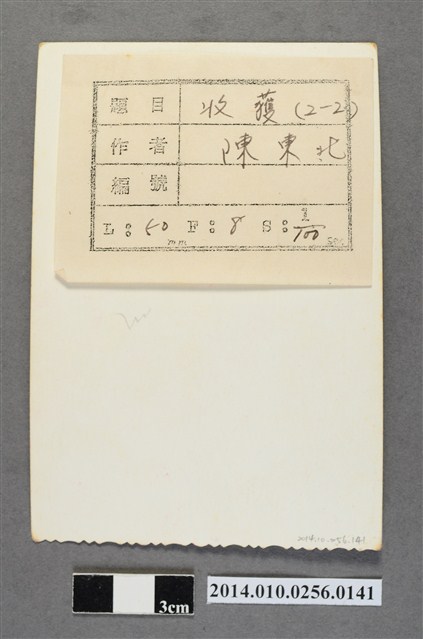 題目 收獲(2-2)
作者 陳東北
編號
L:50mm F:8 S:1/100 sec
2014.10.256.141
3cm
2014.010.0256.0141